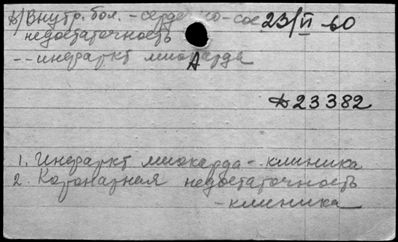 в/ Внутр. бол. - сердечно-сос 23/VI 60
недостаточность
-- инфаркт миокарда
23382
1. Инфаркт миокарда - клиника
2. Коронарная недостаточность
- клиника